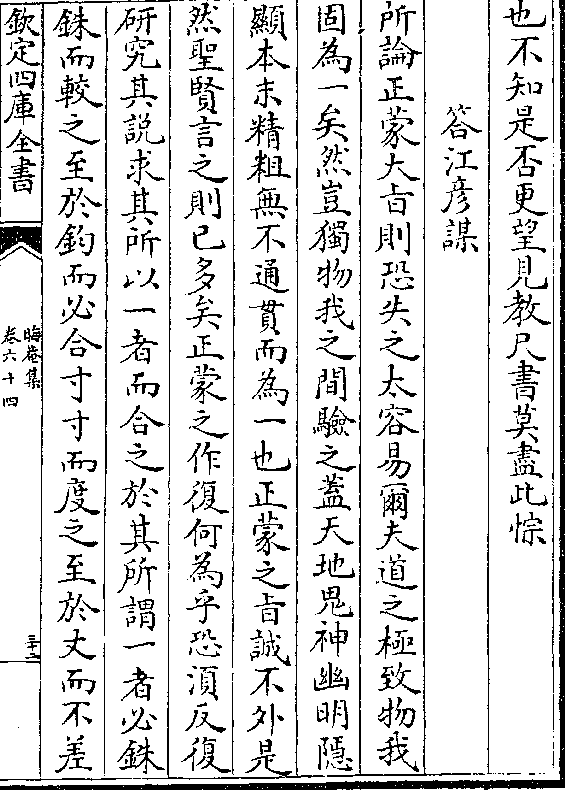 也不知是否更望見教尺書莫盡此悰
答江彦謀
所論正蒙大㫖則恐失之太容易爾夫道之極致物我
固為一矣然豈獨物我之間驗之蓋天地鬼神幽明隱
顯本末精粗無不通貫而為一也正蒙之㫖誠不外是
然聖賢言之則已多矣正蒙之作復何為乎恐須反復
研究其說求其所以一者而合之於其所謂一者必銖
銖而較之至於鈞而必合寸寸而度之至於丈而不差
欽定四庫全書
晦菴集
卷六十四
三十二